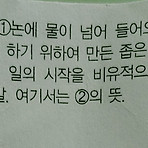 ①논에 물이 넘어 들어오
하기 위하여 만든 좁은
일의 시작을 비유적으
말. 여기서는 ②의 뜻.